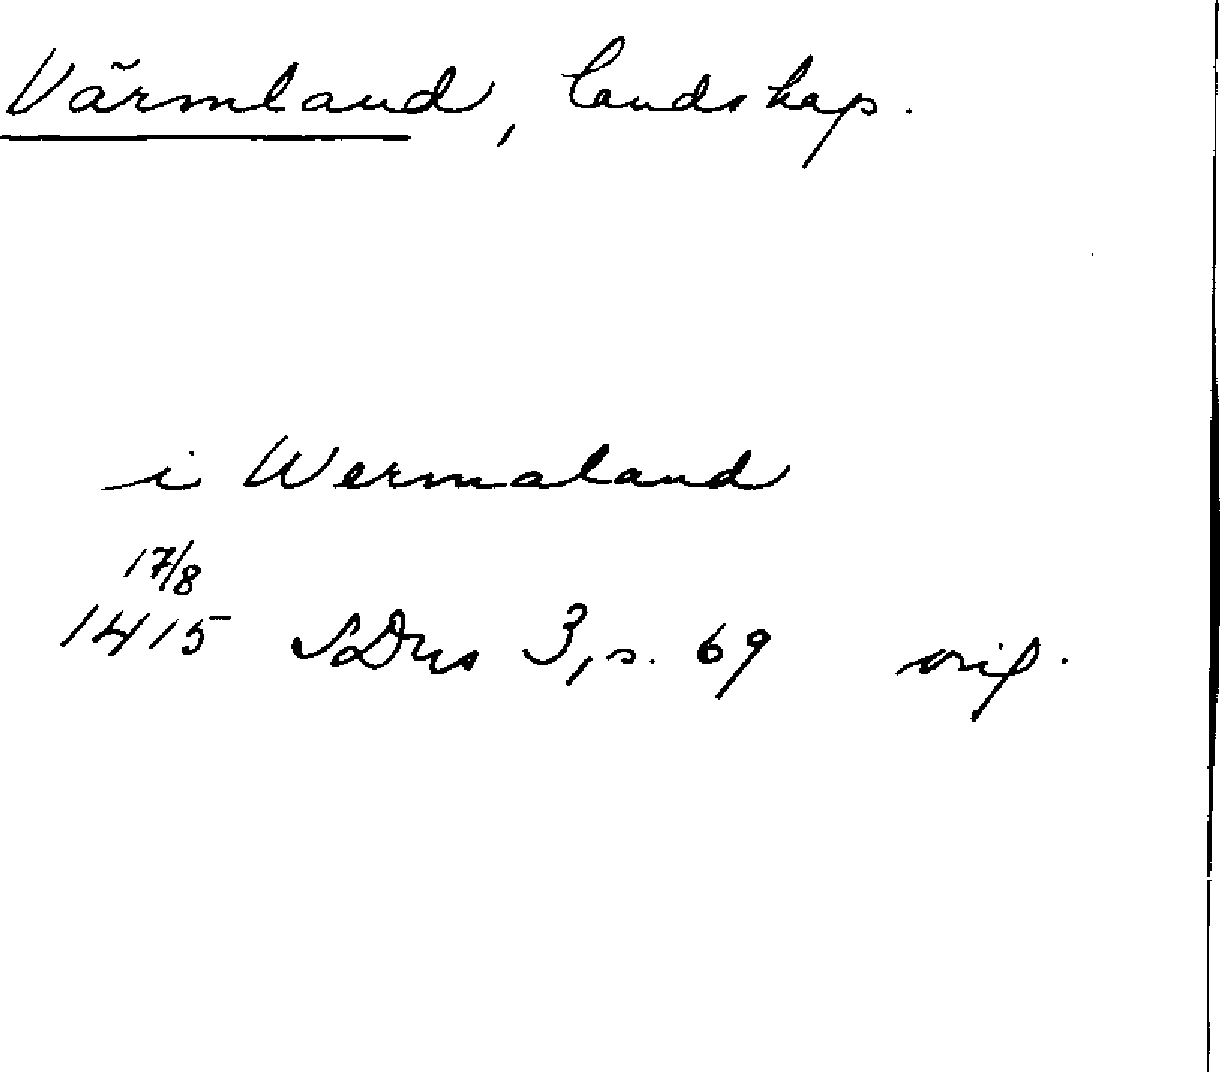 Värmland, landskap.
i Wermaland
17/8
1415 SDns 3, s. 69 orig.